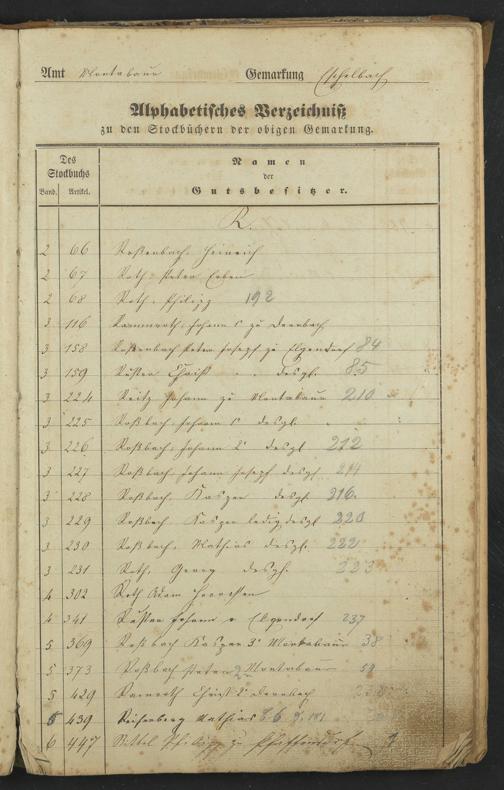 Amt Montabaur Gemarkung Eschelbach
Alphabetisches Verzeichniß
zu den Stockbüchern der obigen Gemarkung.
Des Stockbuchs
Band. Artikel.
Namen
der
Gutsbesitzer.
R.
2 66 Roßenbach, Heinrich
2 67 Roth Peter Erben
2 68 Roth, Philipp 192
3 116 Johann zu Dernbach
3 158 Roßenbach Peter Joseph zu Elgendorf 84
3 159 Christ desgl. 85
3 224 Reitz Johann zu Montabaur 210
3 225 Roßbach Johann desgl.
3 226 Roßbach, Johann 2r desgl 212
3 227 Roßbach Johann Joseph desgl 214
3 228 Roßbach, Kasper desgl 216
3 229 Roßbach, Kasper ledig desgl 220
3 230 Roßbach, Mathias desgl. 222
3 231 Roth, Georg desgl. 223
4 302 Roth Adam
4 341 Johann Elgendorf 237
5 369 Roßbach Kasper 3r Montabaur 38
5 373 Roßbach Peter 2r Montabaur 59
5 429 Christ 2r Dernbach
5 439 Reifenberg Mathias
6 447 Philipp zu